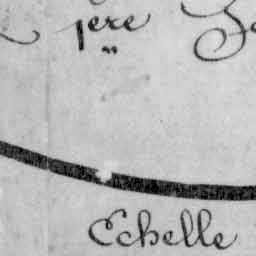 1ere
Echelle